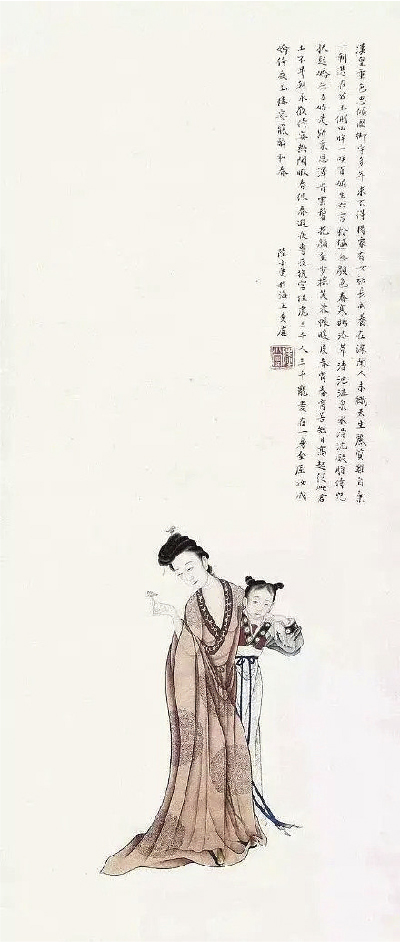 漢皇重色思傾國御宇多年求不得楊家有女初長成養在深閨人未識天生麗質難自棄
一朝選在君王側回眸一笑百媚生六宮粉黛無顏色春寒賜浴華清池溫泉水滑洗凝脂侍兒
扶起嬌無力始是新承恩澤時雲鬢花顏金步搖芙蓉帳暖度春宵春宵苦短日高起從此君
王不早朝承歡侍宴無閒暇春從春遊夜專夜後宮佳麗三千人三千寵愛在一身金屋妝成
嬌侍夜玉樓宴罷醉和春
陸小曼於海上廬